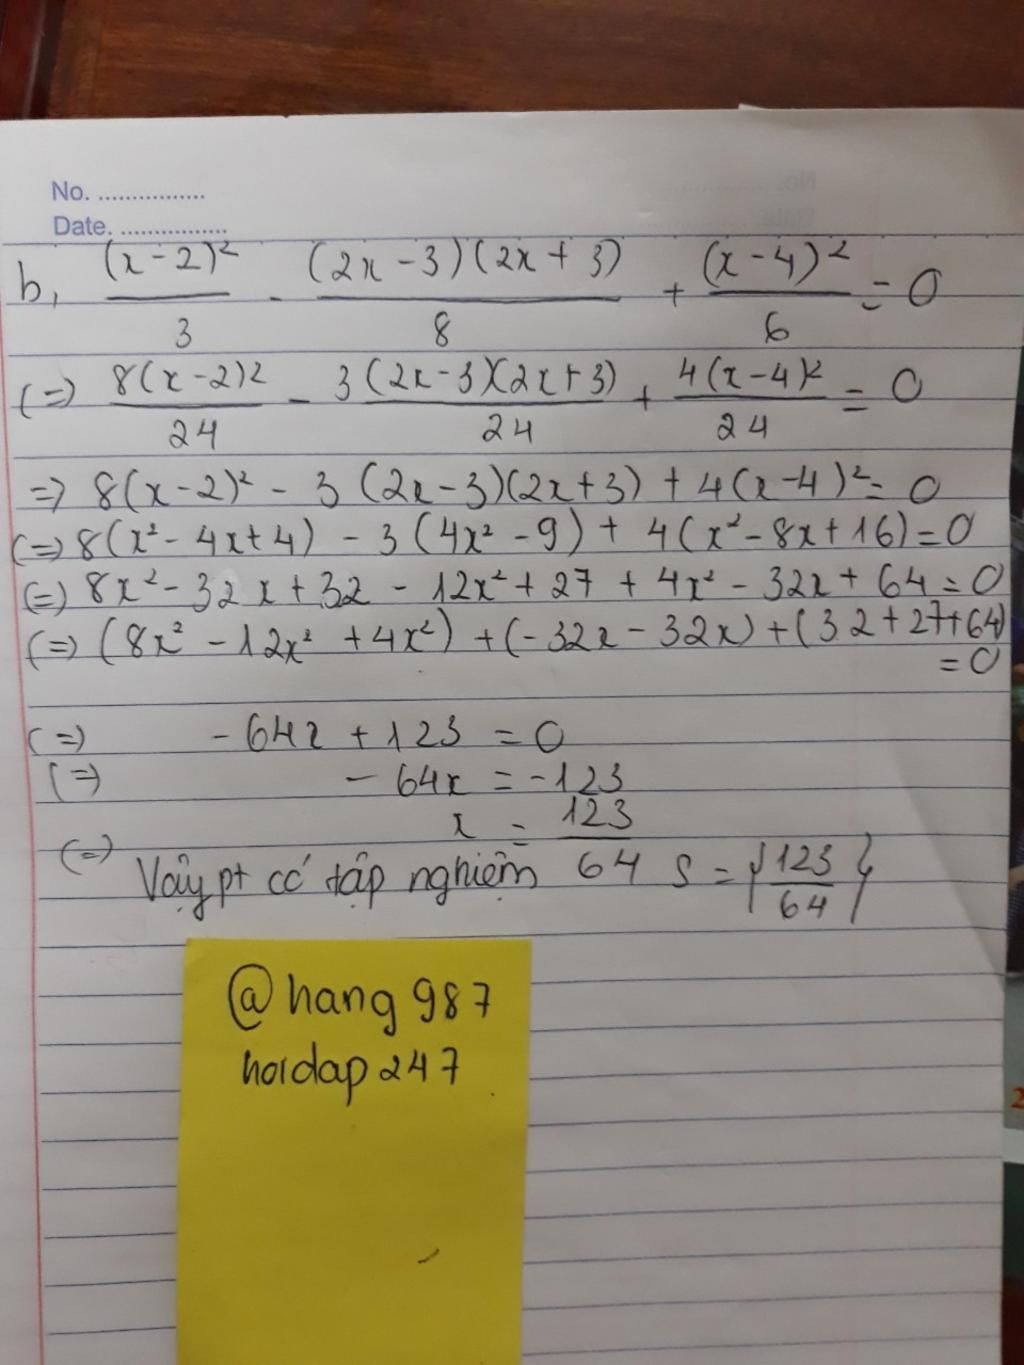 No. ................
Date. ................
b, (x-2)²/3 - (2x-3)(2x+3)/8 + (x-4)²/6 = 0
(=) 8(x-2)²/24 - 3(2x-3)(2x+3)/24 + 4(x-4)²/24 = 0
=) 8(x-2)² - 3(2x-3)(2x+3) + 4(x-4)² = 0
(=) 8(x² - 4x+4) - 3(4x² - 9) + 4(x² - 8x+16) = 0
(=) 8x² - 32x + 32 - 12x² + 27 + 4x² - 32x + 64 = 0
(=) (8x² - 12x² + 4x²) + (-32x - 32x) + (32+27+64)
= 0
(=) -64x + 123 = 0
(=) -64x = -123
(=) x = 123/64
Vậy pt có tập nghiệm S = {123/64}
@hang987
hoidap247
2